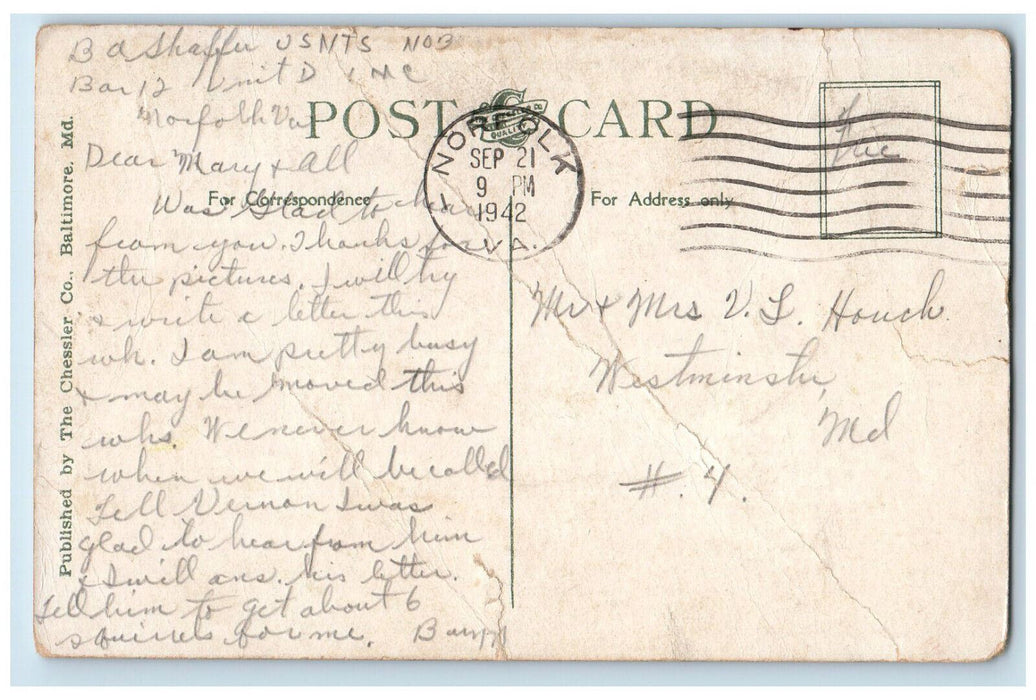 B A Shaffer USNTS NOB
Bar 12 Unit D 1 MC
Norfolk Va
POST CARD
QUALITY
NORFOLK
SEP 21
9 PM
1942
VA.
Free
Dear Mary & All
For Correspondence
For Address only
Was glad to hear
from you. Thanks for
the pictures. I will try
& write a letter this
wk. I am pretty busy
& may be moved this
wk. We never know
when we will be called
Tell Vernon I was
glad to hear from him
& I will ans. his letter.
Tell him to get about 6
squirrels for me.
Mr & Mrs V. L. Houck
Westminster,
Md
#.4.
Published by The Chessler Co., Baltimore. Md.